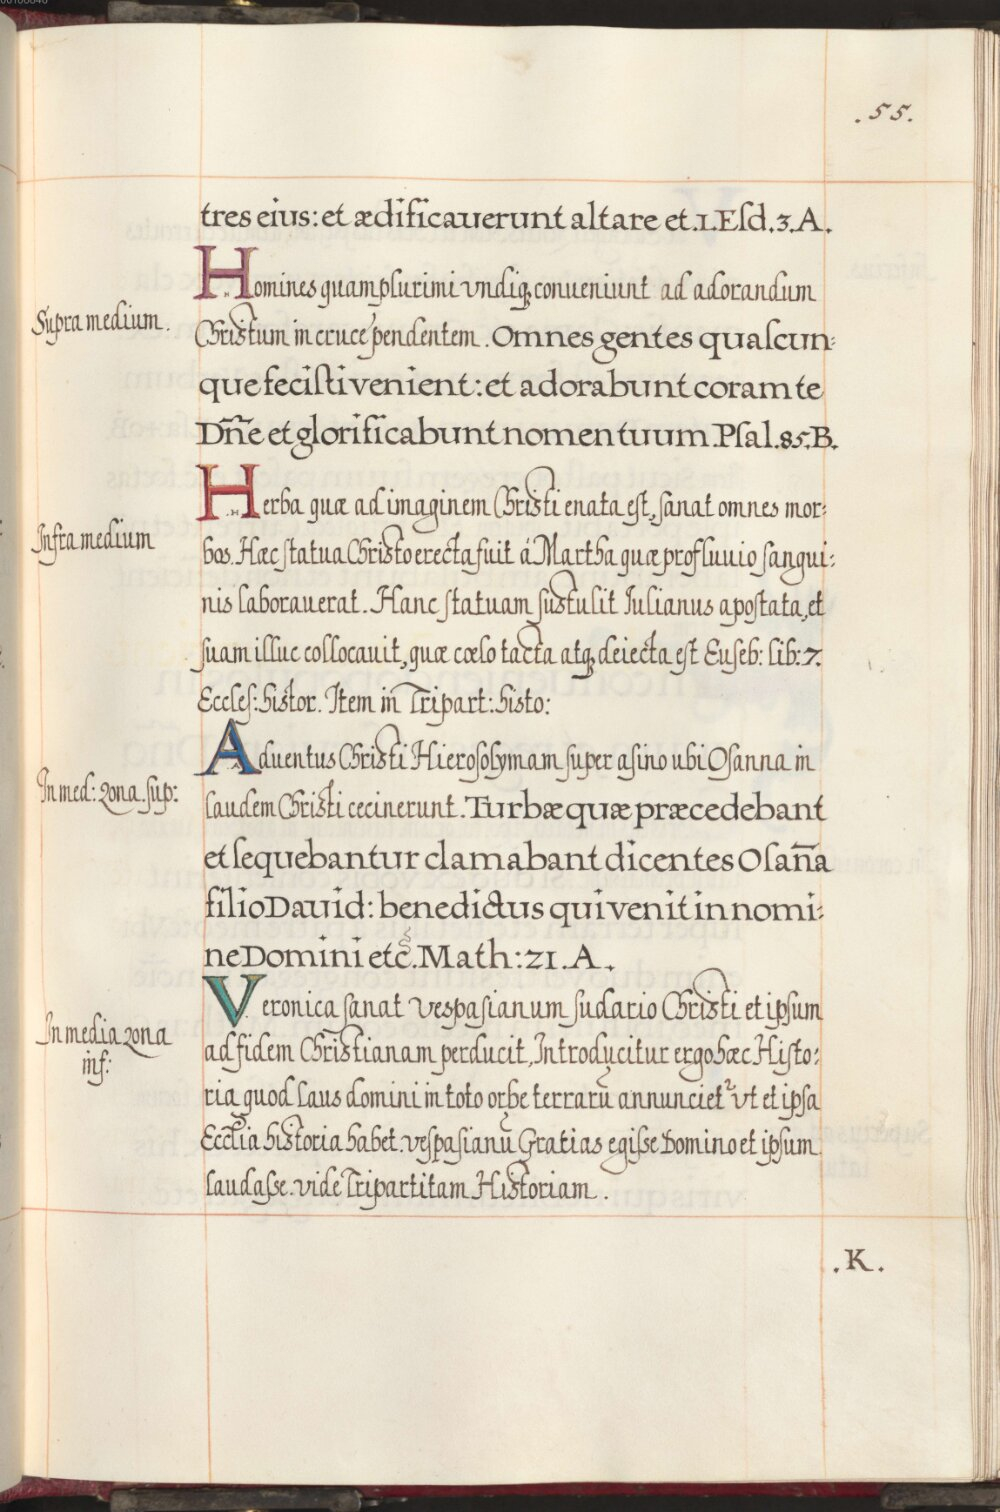 .55.
tres eius: et ædificauerunt altare et. I. Esd. 3. A.
Supra medium.
Homines quamplurimi vndiq, conueniunt ad adorandum
Christum in cruce pendentem. Omnes gentes quascun:
que fecisti venient: et adorabunt coram te
Dñe et glorificabunt nomen tuum. Psal. 85. B.
Infra medium
Herba quæ ad imaginem Christi enata est, sanat omnes mor:
bos. Hæc statua Christo erecta fuit á Martha quæ profluuio sangui:
nis laborauerat. Hanc statuam sustulit Iulianus apostata, et
suam illuc collocauit, quæ cœlo tacta atq, deiecta est Euseb: lib: 7.
Eccles: histor. Item in Tripart: histo:
In med: zona. sup:
Aduentus Christi Hierosolymam super asino ubi Osanna in
laudem Christi cecinerunt. Turbæ quæ præcedebant
et sequebantur clamabant dicentes Osaña
filio Dauid: benedictus qui venit in nomi:
ne Domini etc̃. Math: 21. A.
In media zona
inf:
Veronica sanat vespasianum sudario Christi et ipsum
ad fidem Christianam perducit, Introducitur ergo hæc Histo:
ria quod laus domini in toto orbe terrarũ annuncietr vt et ipsa
Ecctia historia habet. vespasianũ Gratias egisse Domino et ipsum
laudasse. vide Tripartitam Historiam.
.K.